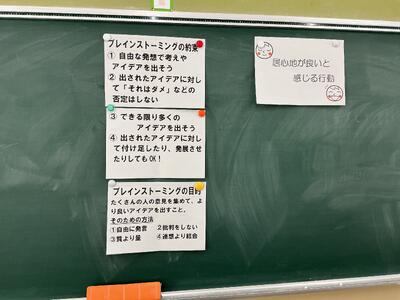 ブレインストーミングの約束
① 自由な発想で考えや
アイデアを出そう
② 出されたアイデアに対し
て「それはダメ」などの
否定はしない
③ できる限り多くの
アイデアを出そう
④ 出されたアイデアに対し
て付け足したり、発展させ
たりしてもOK!
ブレインストーミングの目的
たくさんの人の意見を集めて、よ
り良いアイデアを出すこと。
そのための方法
①自由に発言 2批判をしない
③質より量 4連想より結合
居心地が良いと
感じる行動